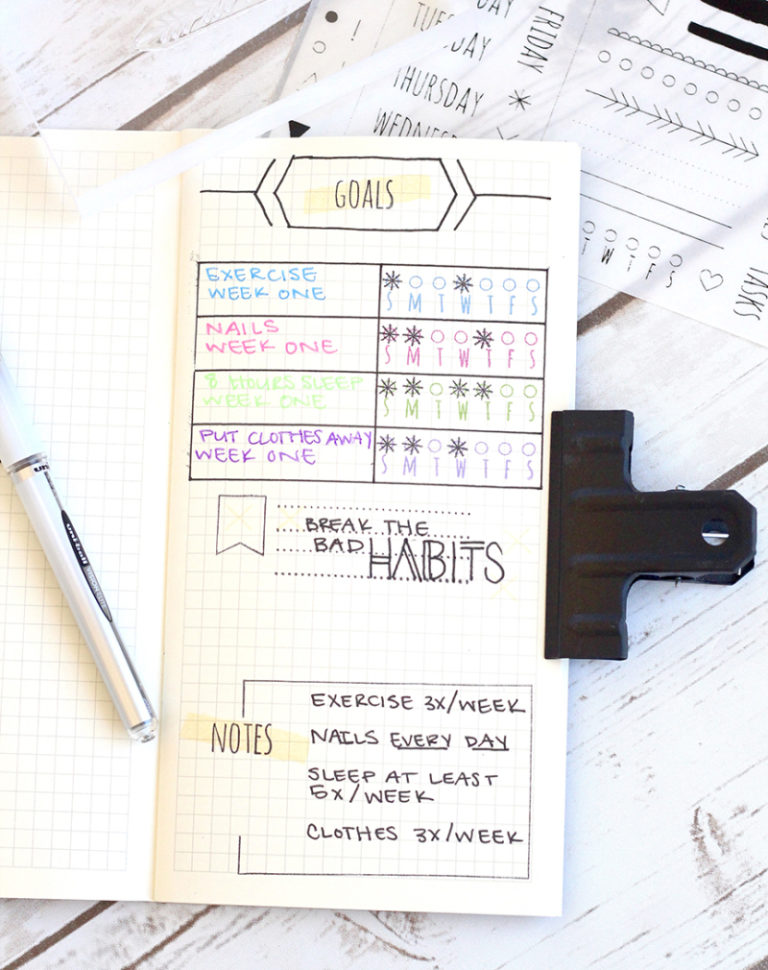 DAY
TUESDAY
DAY
FRIDAY
THURSDAY
WEDNES
TASKS
T W T F S
GOALS
EXERCISE
WEEK ONE
S M T W T F S
NAILS
WEEK ONE
S M T W T F S
8 HOURS SLEEP
WEEK ONE
S M T W T F S
PUT CLOTHES AWAY
WEEK ONE
S M T W T F S
BREAK THE
BAD HABITS
NOTES
EXERCISE 3X/WEEK
NAILS EVERY DAY
SLEEP AT LEAST
5X/WEEK
CLOTHES 3X/WEEK
uni
uni-ball